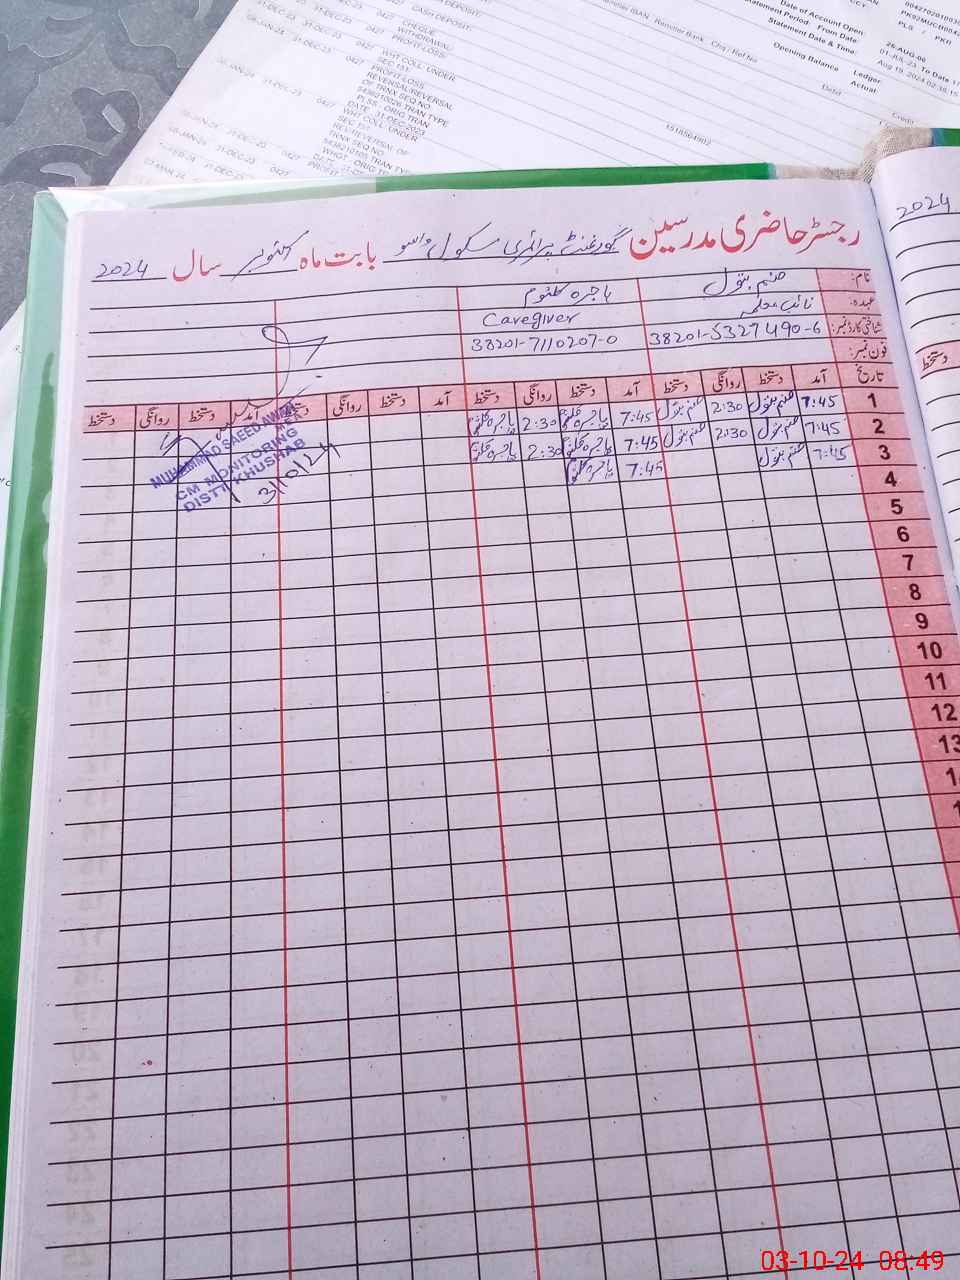 CASH DEPOSIT:
CHEQUE
WITHDRAWAL
PROFIT/LOSS:
WHT COLL' UNDER
SEC 151
PROFIT/LOSS
REVERSAL/REVERSAL
OF TRNX SEQ NO
5436210026 TRAN TYPE
PLSS - ORIG TRAN
DATE : 31-DEC-2023
WHT COLL' UNDER
SEC 151
REV/REVERSAL OF
TRNX SEQ NO
5436210105 TRAN TYPE
Remitter Bank - Chq / Ref No
Date of Account Open:
Statement Period : From Date:
Statement Date & Time:
Opening Balance
Ledger
Actual:
Debit
Credit
1518564902
26-AUG-06
01-JUL-23 To Date
PLS / PKR
رجسٹر حاضری مدرسین گورنمنٹ پرائمری سکول واسو بابت ماہ اکتوبر سال 2024
نام: صنم بتول ہاجرہ کلثوم
عہدہ: نائب معلمہ Caregiver
شناختی کارڈ نمبر: 38201-5327490-6 38201-7110207-0
فون نمبر:
تاریخ آمد دستخط روانگی دستخط آمد دستخط روانگی دستخط آمد دستخط روانگی دستخط آمد دستخط روانگی دستخط
1 7:45 صنم بتول 2:30 صنم بتول 7:45 ہاجرہ کلثوم 2:30 ہاجرہ کلثوم
2 7:45 صنم بتول 2:30 صنم بتول 7:45 ہاجرہ کلثوم 2:30 ہاجرہ کلثوم
3 7:45 صنم بتول 7:45 ہاجرہ کلثوم
4
5
6
7
8
9
10
11
12
13
MUHAMMAD SAEED AWAN
CM MONITORING
DISTT. KHUSHAB
3/10/24
2024
دستخط
03-10-24 08:49